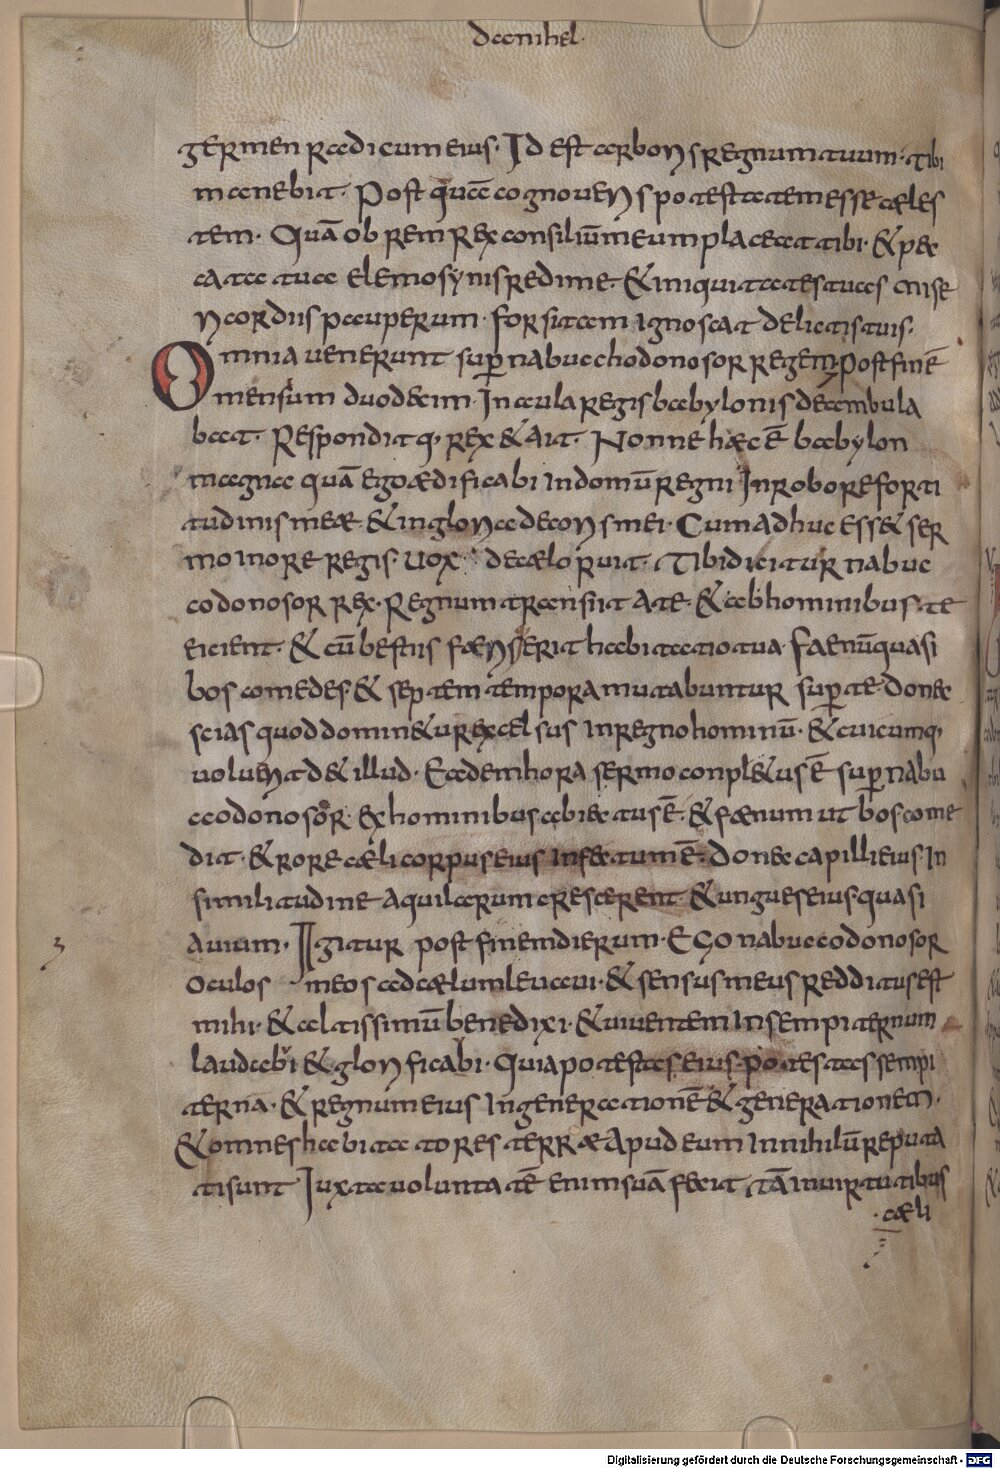 danihel·
germen radicum eius· Id est arboris regnum tuum· tibi
manebit· Post quā cognoueris potestatem esse cæles
tem· Quā ob rem rex consiliū meum placeat tibi· & pec
cata tua elemosynis redime· & iniquitates tuas mise
ricordiis pauperum· forsitam ignoscat delictis tuis·
Omnia uenerunt sup nabuchodonosor regem post finē
mensum duodecim· In aula regis babylonis deambula
bat· Responditq· rex & ait· Nonne hæc ē babylon
magna quā ego ædificabi In domū regni In robore forti
tudinis meæ· & in gloria decoris mei· Cum adhuc ess& ser
mo in ore regis· uox de cælo ruit· Tibi dicitur nabuc
codonosor rex· Regnum transiit a te· & ab hominibus te
eicient· & cū bestiis færis erit habitatio tua· faenū quasi
bos comedes· & septem tempora mutabuntur sup te· donec
scias quod domin&ur excelsus In regno hominū· & cuicumq·
uoluerit d& illud· Eadem hora sermo conpl&us ē sup nabu
codonosor· ex hominibus abiectus ē· & fænum ut bos come
dit· & rore cæli corpus eius Infectum ē· donec capilli eius In
similitudine aquilarum crescerent· & ungues eius quasi
auium· Igitur post finem dierum· EGO nabuccodonosor
oculos meos ad cælum leuaui· & sensus meus redditus est
mihi· & altissimū benedixi· & uiuentem In sempiternum
laudabi & glorificabi· Quia potestas eius potestas sempi
terna· & regnum eius In generationē & generationem·
& omnes habitatores terræ apud eum In nihilū reputa
ti sunt Iuxta uoluntatē enim suā fecit, tā In uirtutibus
·cæli
3
Digitalisierung gefördert durch die Deutsche Forschungsgemeinschaft - DFG